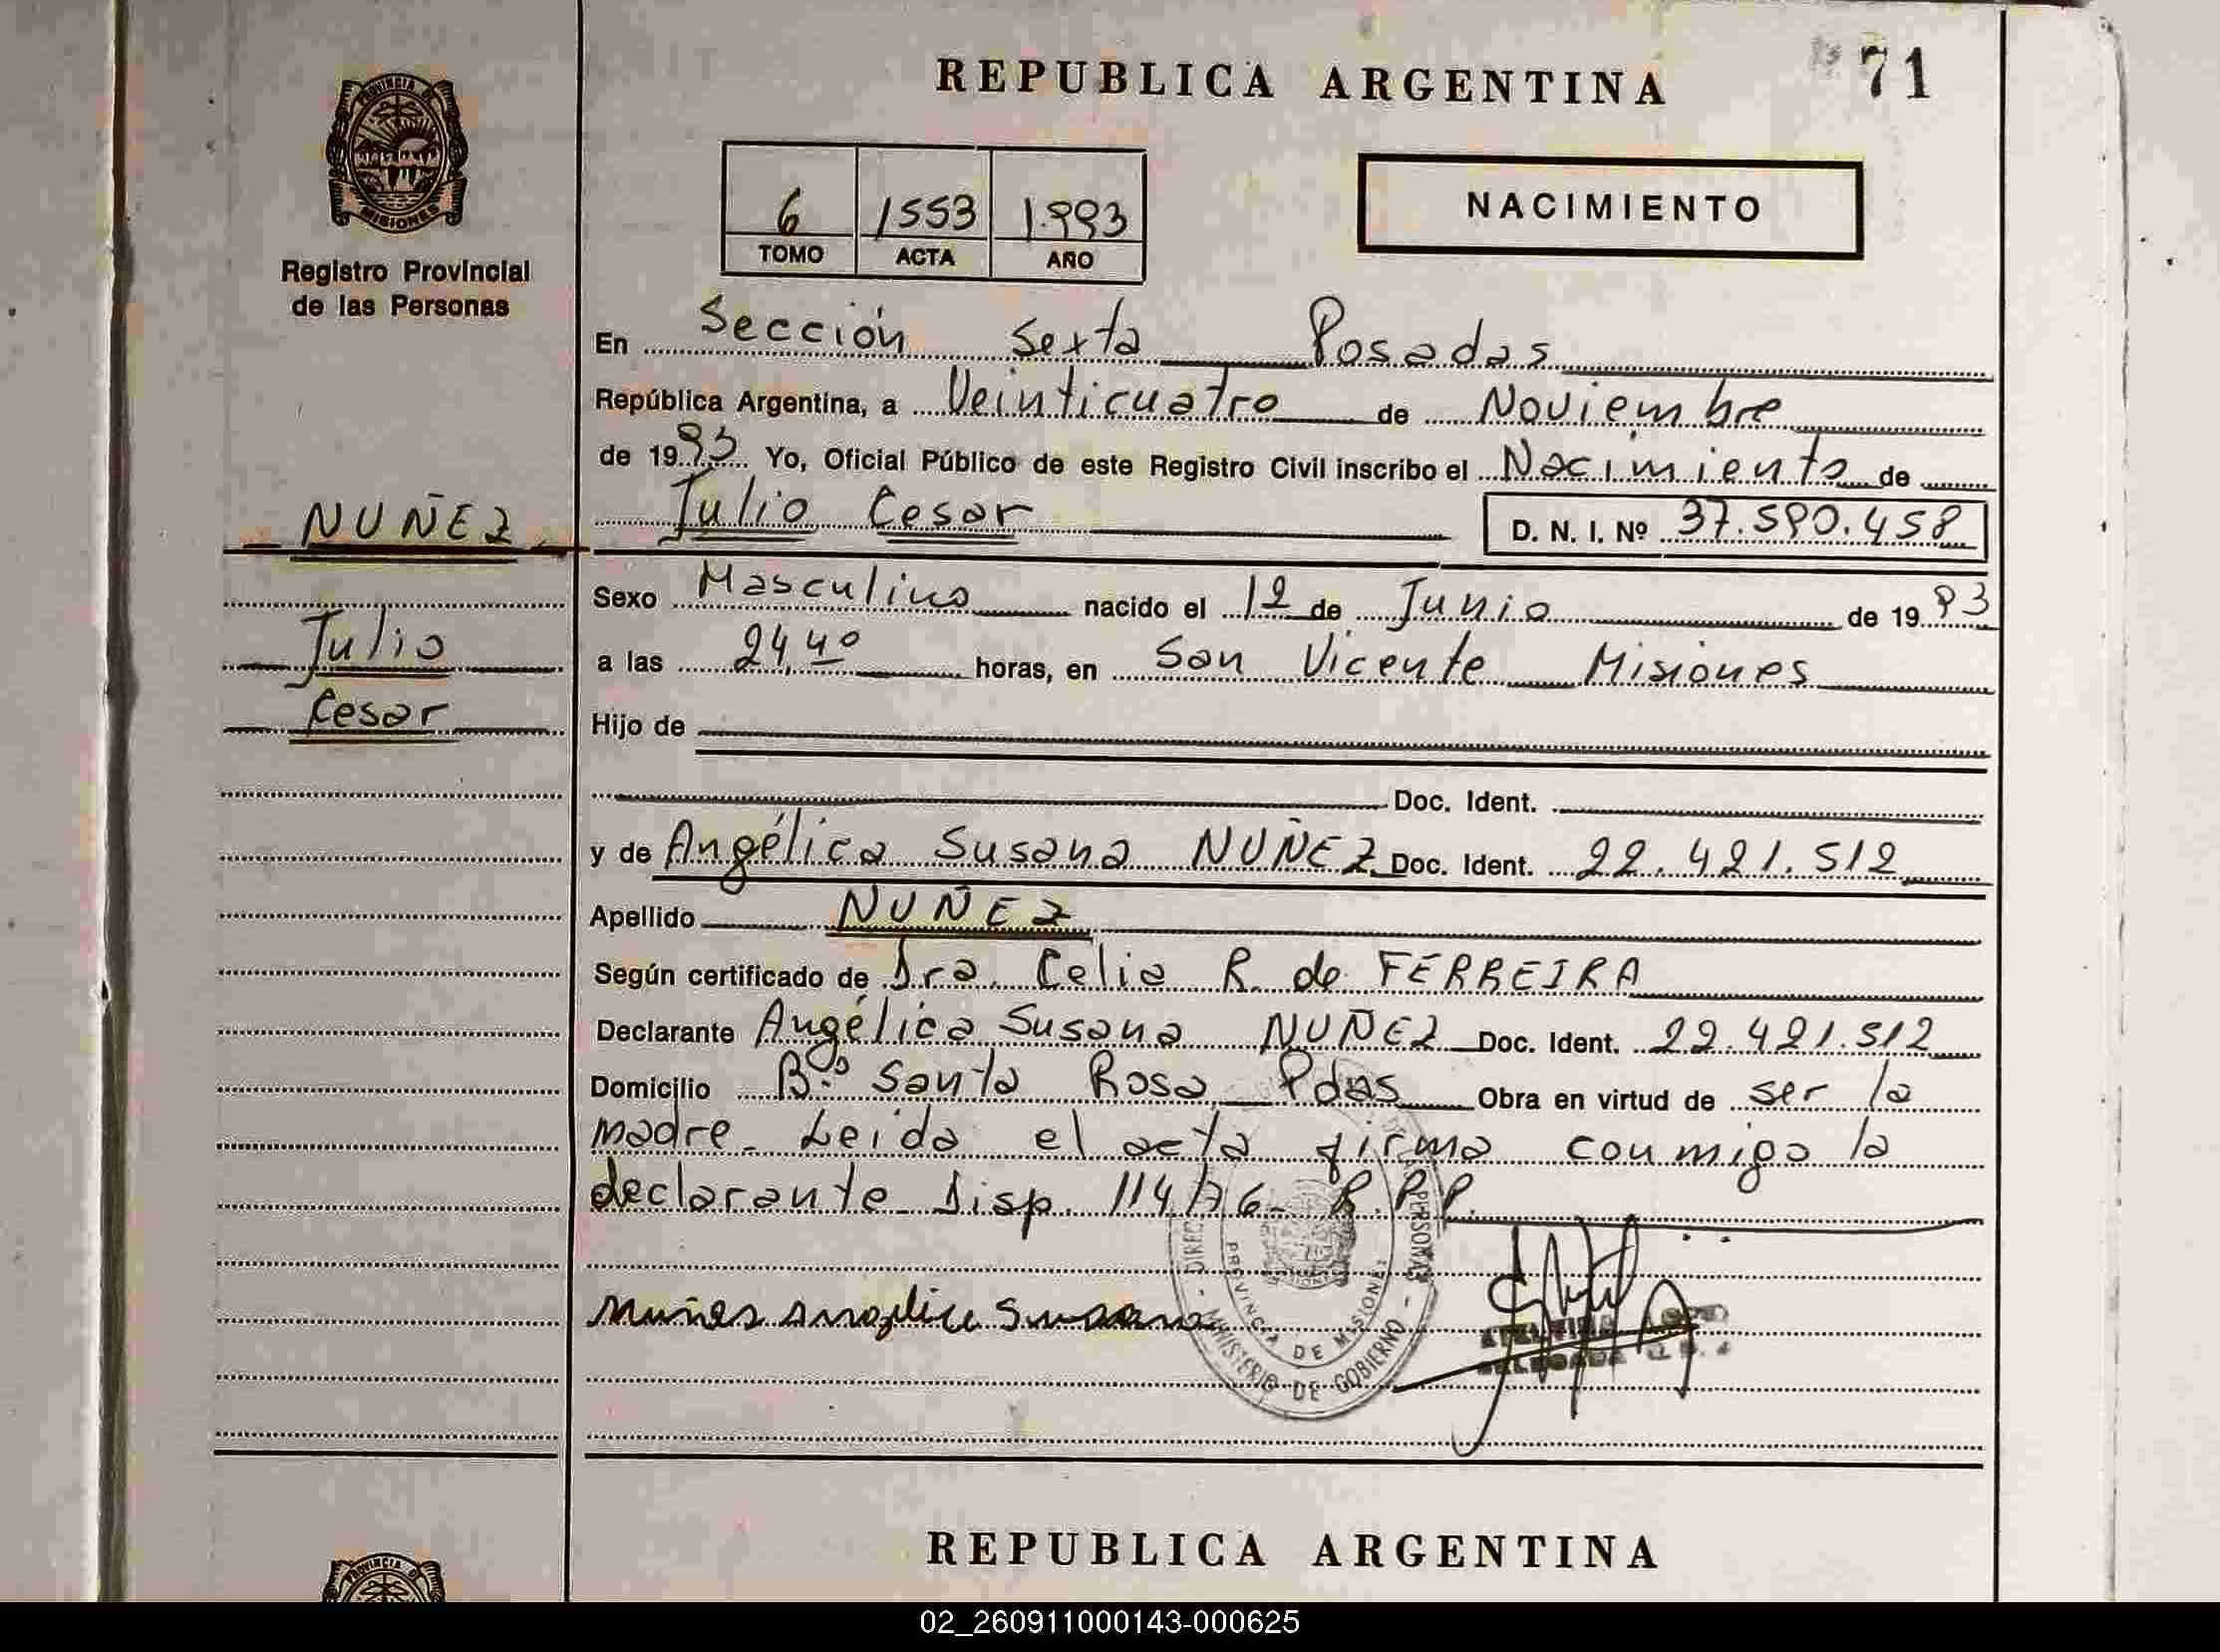 REPUBLICA ARGENTINA
71
PROVINCIA DE
MISIONES
Registro Provincial
de las Personas
6 1553 1.993
TOMO ACTA AÑO
NACIMIENTO
En Sección Sexta Posadas
República Argentina, a Veinticuatro de Noviembre
de 1993 Yo, Oficial Público de este Registro Civil inscribo el Nacimiento de
NUÑEZ
Julio Cesar D. N. I. Nº 37.590.458
Sexo Masculino nacido el 12 de Junio de 1993
Julio
a las 24,40 horas, en San Vicente Misiones
Cesar
Hijo de
Doc. Ident.
y de Angélica Susana NUÑEZ Doc. Ident. 22.421.512
Apellido NUÑEZ
Según certificado de Dra. Celia R. de FERREIRA
Declarante Angélica Susana NUÑEZ Doc. Ident. 22.421.512
Domicilio B.º Santa Rosa Pdas Obra en virtud de ser la
madre. Leida el acta firma conmigo la
declarante. Disp. 114/76 R.P.P.
Muñes Angelica Susana
PERSONAS
PROVINCIA DE MISIONES
MINISTERIO DE GOBIERNO
REPUBLICA ARGENTINA
PROVINCIA
02_260911000143-000625